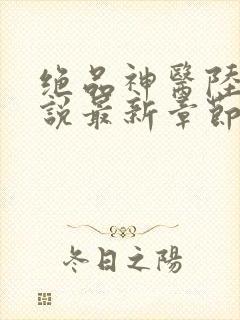 绝品神醫陸
說最新章節
冬日之陽